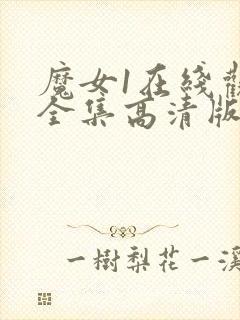 魔女1在綫觀
全集高清版
一樹梨花一溪